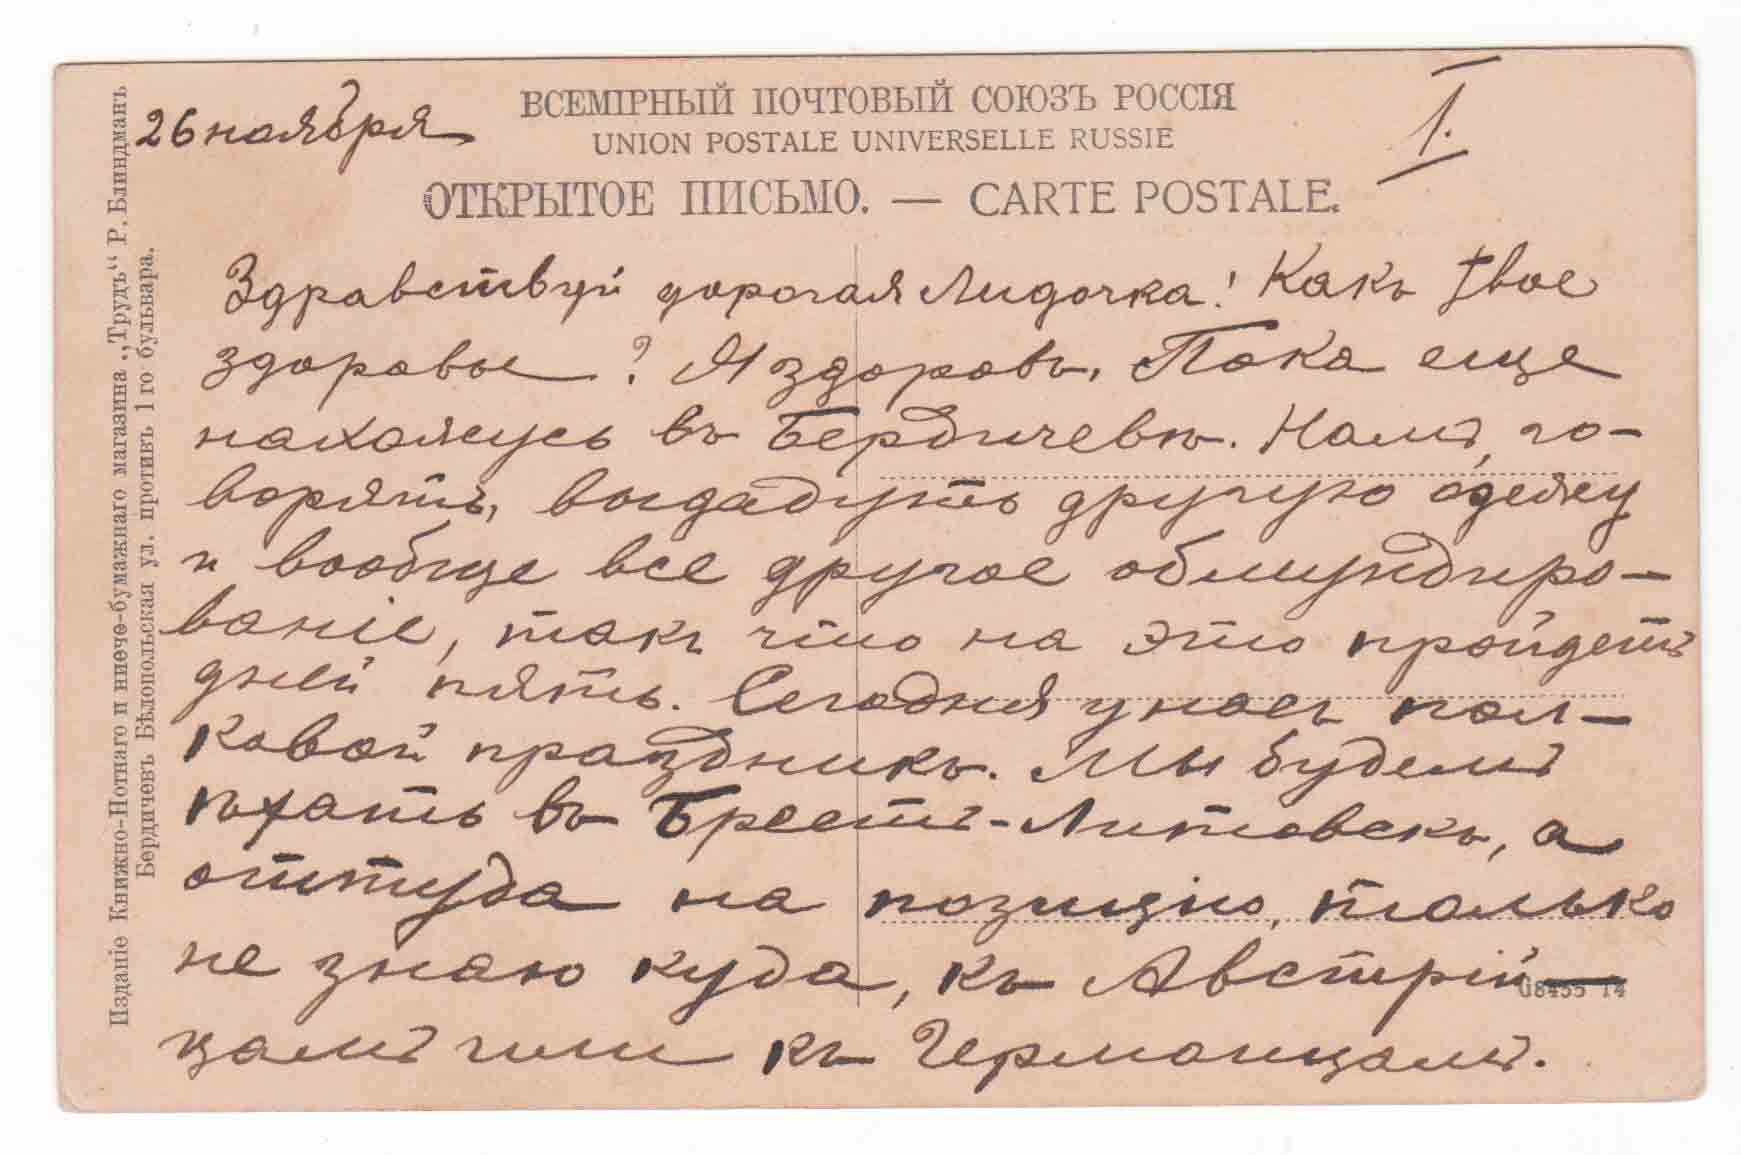 26 ноября
ВСЕМІРНЫЙ ПОЧТОВЫЙ СОЮЗЪ РОССІЯ
UNION POSTALE UNIVERSELLE RUSSIE
ОТКРЫТОЕ ПИСЬМО. — CARTE POSTALE.
I.
Здравствуй дорогая Лидочка! Какъ твое
здоровье? Я здоровъ. Пока еще
нахожусь въ Бердичевѣ. Намъ, го-
ворятъ, выдадутъ другую одежу
и вообще все другое обмундиро-
ваніе, такъ что на это пройдетъ
дней пять. Сегодня у насъ пол-
ковой праздникъ. Мы будемъ
ѣхать въ Брестъ-Литовскъ, а
оттуда на позицію, только
не знаю куда, къ Австрій-
цамъ или къ Германцамъ.
G8455 14
Изданіе Книжно-Нотнаго и писче-бумажнаго магазина „Трудъ“ Р. Блиндманъ
Бердичевъ Бѣлопольская ул. противъ 1го бульвара.